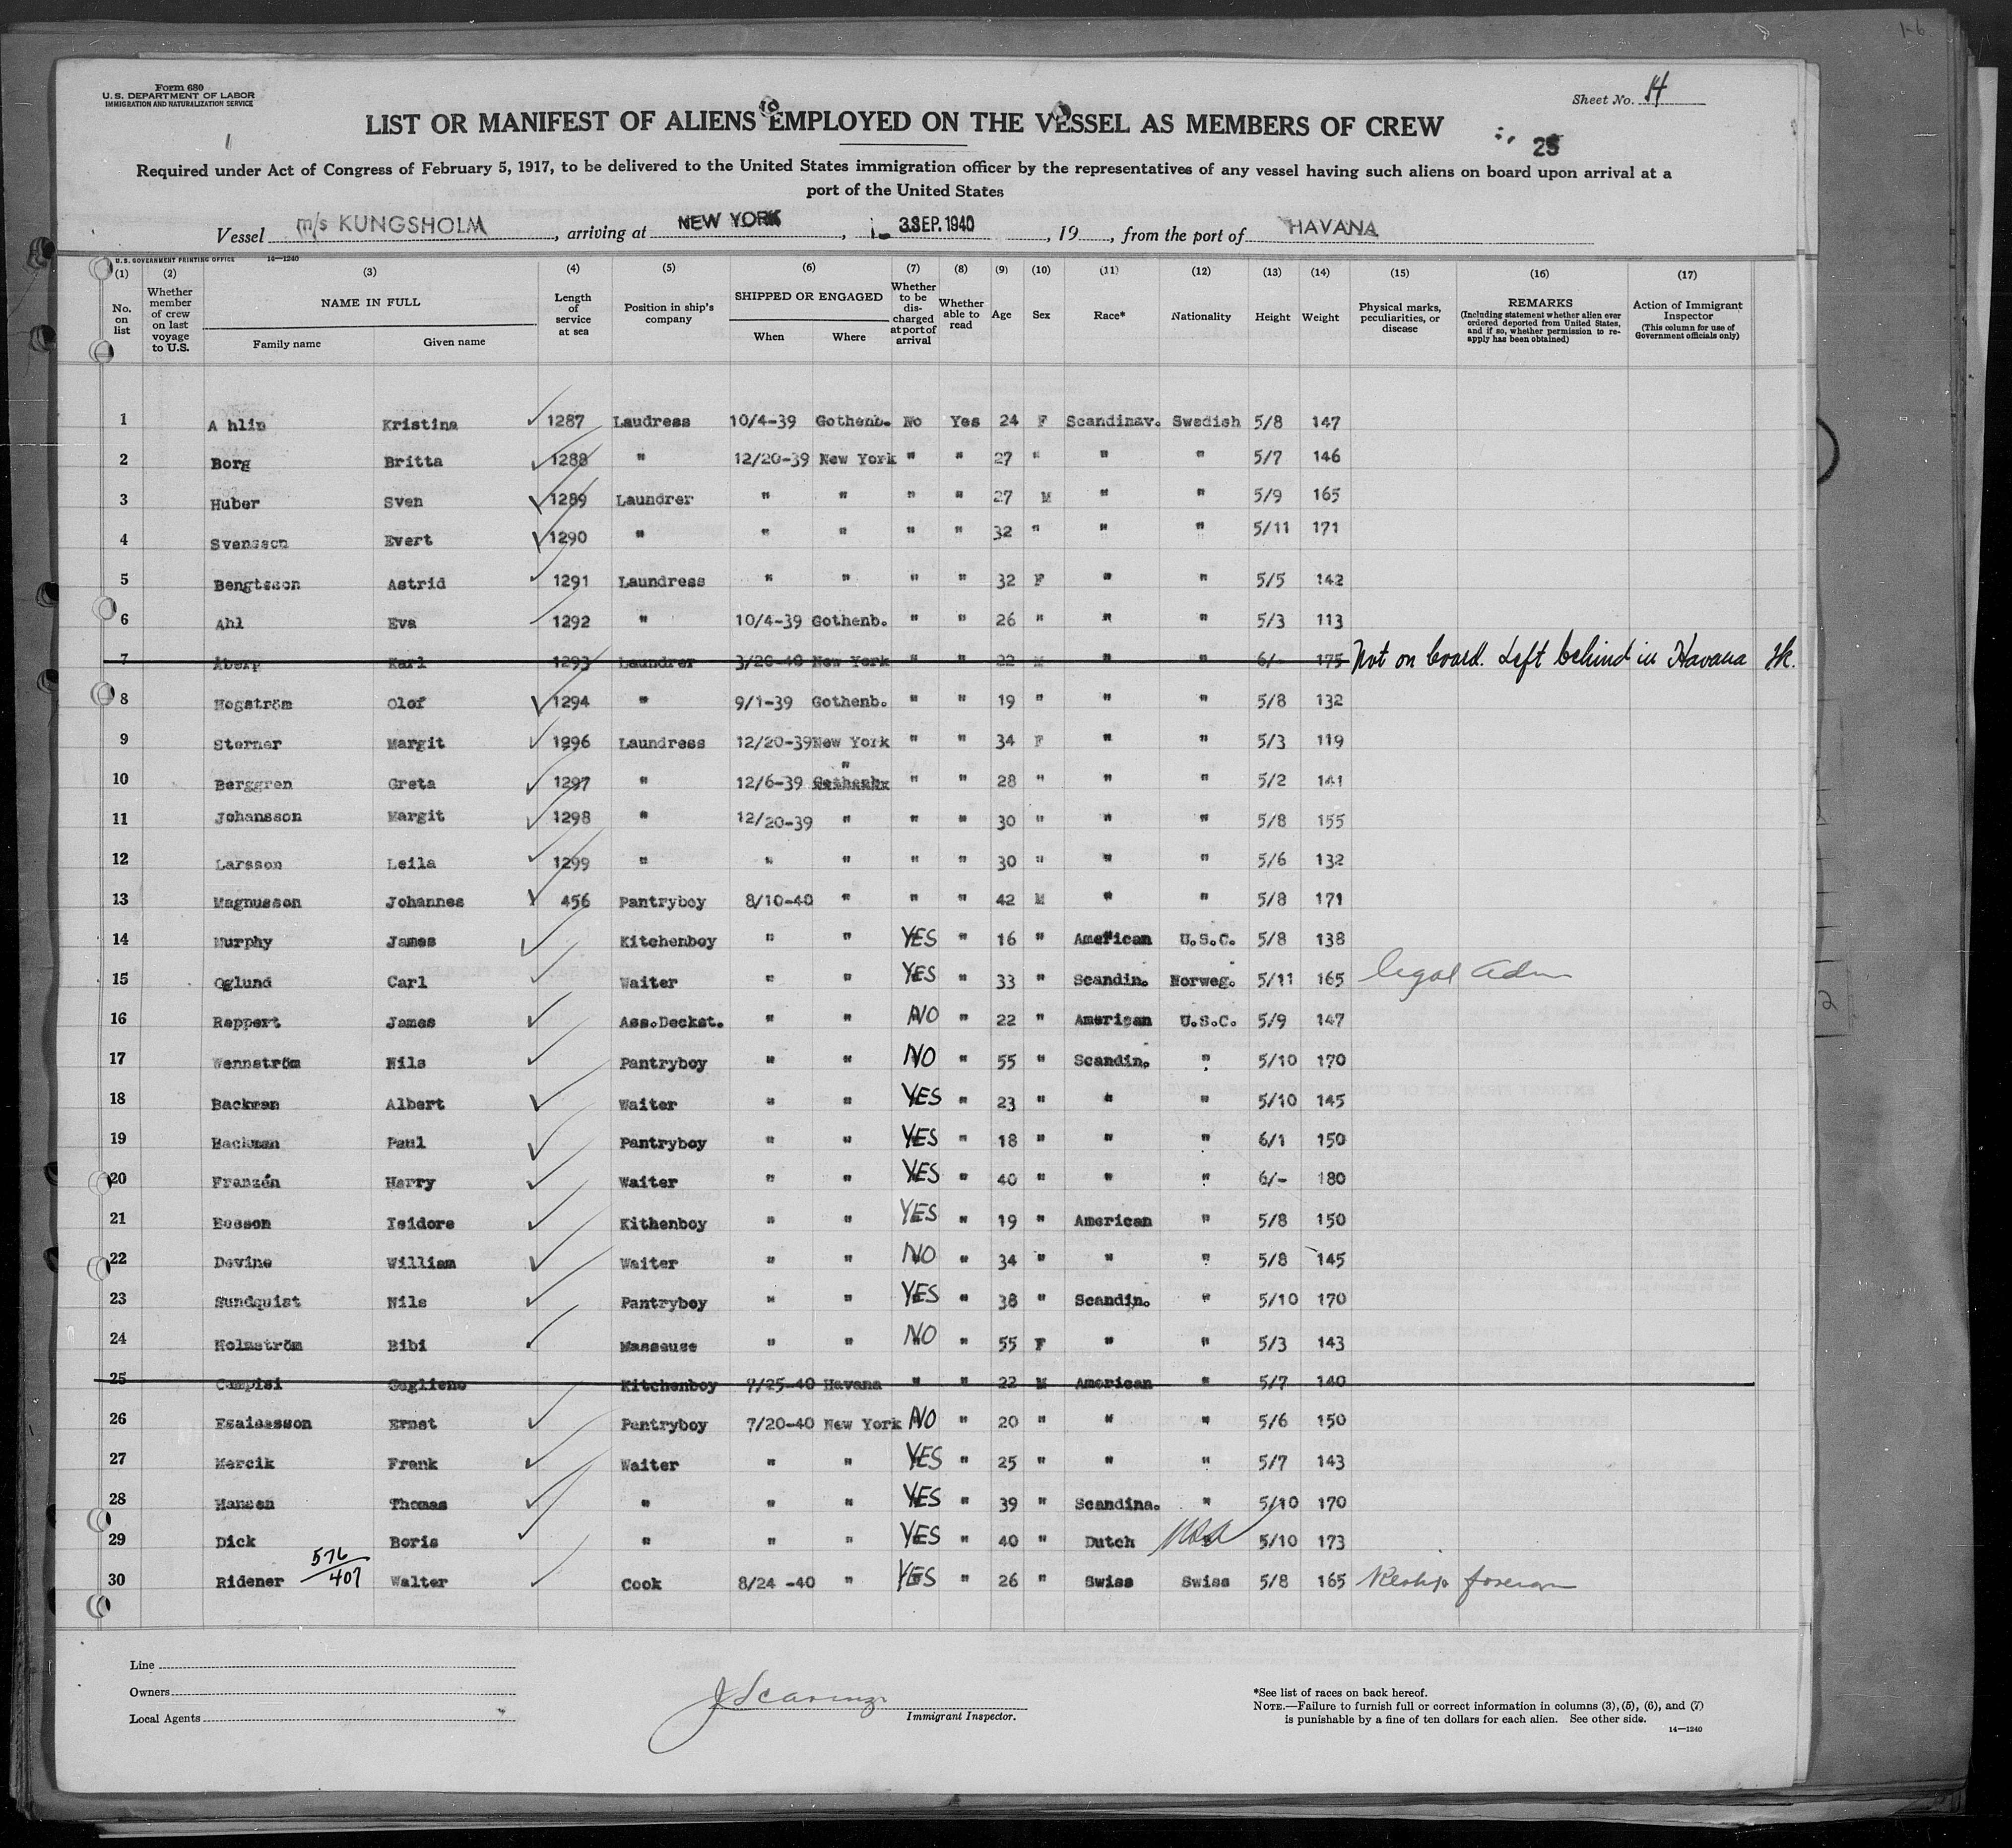 1-6
Form 680
U. S. DEPARTMENT OF LABOR
IMMIGRATION AND NATURALIZATION SERVICE
Sheet No. 14
LIST OR MANIFEST OF ALIENS EMPLOYED ON THE VESSEL AS MEMBERS OF CREW
Required under Act of Congress of February 5, 1917, to be delivered to the United States immigration officer by the representatives of any vessel having such aliens on board upon arrival at a
port of the United States
Vessel m/s KUNGSHOLM, arriving at NEW YORK, 3 SEP. 1940, 19, from the port of HAVANA
U. S. GOVERNMENT PRINTING OFFICE 14—1240
(1) (2) (3) (4) (5) (6) (7) (8) (9) (10) (11) (12) (13) (14) (15) (16) (17)
No. on list
Whether member of crew on last voyage to U.S.
NAME IN FULL
Family name Given name
Length of service at sea
Position in ship's company
SHIPPED OR ENGAGED
When Where
Whether to be discharged at port of arrival
Whether able to read
Age
Sex
Race*
Nationality
Height
Weight
Physical marks, peculiarities, or disease
REMARKS
(Including statement whether alien ever ordered deported from United States, and if so, whether permission to reapply has been obtained)
Action of Immigrant Inspector
(This column for use of Government officials only)
1 A hlin Kristina 1287 Laudress 10/4-39 Gothenb. No Yes 24 F Scandinav. Swedish 5/8 147
2 Borg Britta 1288 " 12/20-39 New York " " 27 " " " 5/7 146
3 Huber Sven 1289 Laundrer " " " " 27 M " " 5/9 165
4 Svensson Evert 1290 " " " " " 32 " " " 5/11 171
5 Bengtsson Astrid 1291 Laundress " " " " 32 F " " 5/5 142
6 Ahl Eva 1292 " 10/4-39 Gothenb. " " 26 " " " 5/3 113
7 Åberg Karl 1293 Laundrer 3/26-40 New York " " 22 M " " 6/- 175 Not on board. Left behind in Havana
8 Hogström Olof 1294 " 9/1-39 Gothenb. " " 19 " " " 5/8 132
9 Sterner Margit 1296 Laundress 12/20-39 New York " " 34 F " " 5/3 119
10 Berggren Greta 1297 " 12/6-39 " " " 28 " " " 5/2 141
11 Johansson Margit 1298 " 12/20-39 " " " 30 " " " 5/8 155
12 Larsson Leila 1299 " " " " " 30 " " " 5/6 132
13 Magnusson Johannes 456 Pantryboy 8/10-40 " " " 42 M " " 5/8 171
14 Murphy James Kitchenboy " " YES " 16 " American U.S.C. 5/8 138
15 Oglund Carl Waiter " " YES " 33 " Scandin. Norweg. 5/11 165 legal adm
16 Reppert James Ass.Deckst. " " NO " 22 " American U.S.C. 5/9 147
17 Wennström Nils Pantryboy " " NO " 55 " Scandin. " 5/10 170
18 Backman Albert Waiter " " YES " 23 " " " 5/10 145
19 Backman Paul Pantryboy " " YES " 18 " " " 6/1 150
20 Franzén Harry Waiter " " YES " 40 " " " 6/- 180
21 Bosson Isidore Kithenboy " " YES " 19 " American " 5/8 150
22 Devine William Waiter " " NO " 34 " " " 5/8 145
23 Sundquist Nils Pantryboy " " YES " 38 " Scandin. " 5/10 170
24 Holmström Bibi Masseuse " " NO " 55 F " " 5/3 143
25 Campisi Guglieno Kitchenboy 7/25-40 Havana " " 22 M American " 5/7 140
26 Esaiasson Ernst Pantryboy 7/20-40 New York NO " 20 " " " 5/6 150
27 Mercik Frank Waiter " " YES " 25 " " " 5/7 143
28 Hansen Thomas " " " YES " 39 " Scandina. " 5/10 170
29 Dick Boris " " " YES " 40 " Dutch USA 5/10 173
30 Ridener 576/407 Walter Cook 8/24 -40 " YES " 26 " Swiss Swiss 5/8 165 Reship foreign
Line
Owners
Local Agents
Immigrant Inspector.
*See list of races on back hereof.
NOTE.—Failure to furnish full or correct information in columns (3), (5), (6), and (7)
is punishable by a fine of ten dollars for each alien. See other side.
14—1240